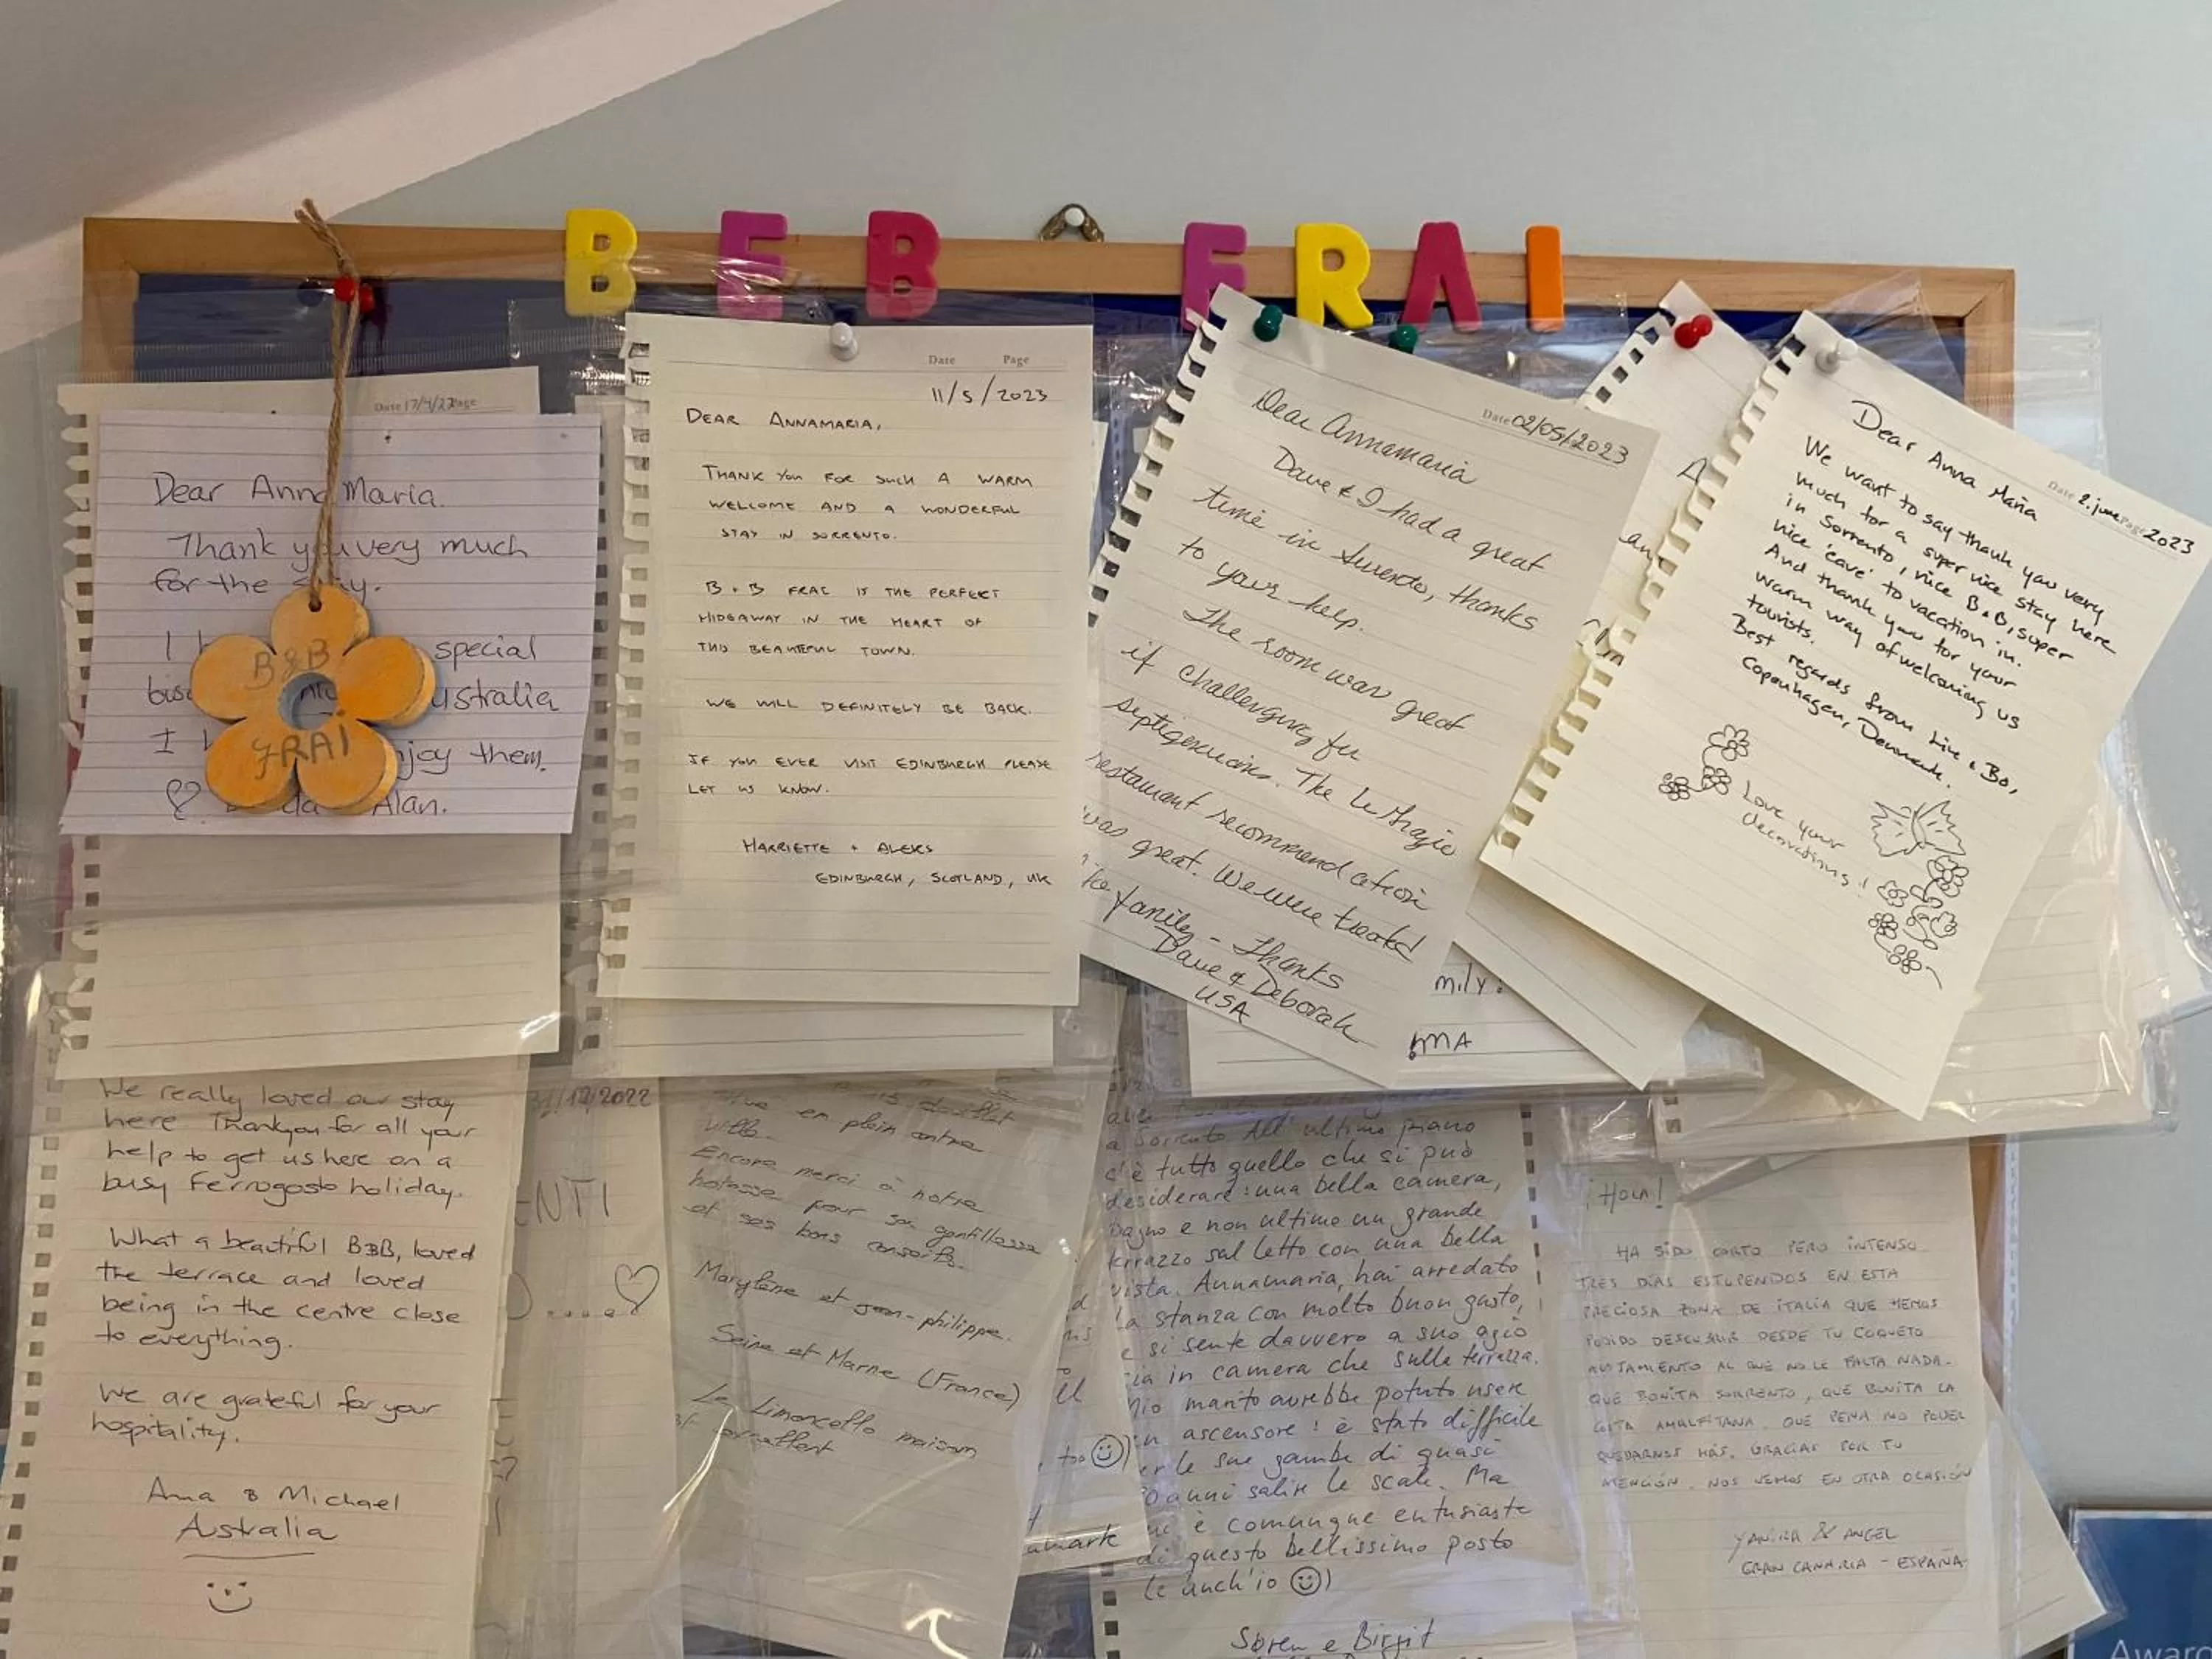 B E B FRAI
Date 17/4/23 Page
Dear Anna Maria.
Thank you very much
for the
I special
Australia
I enjoy them.
Alan.
B&B
FRAI
Date Page
11/5/2023
DEAR ANNAMARIA,
THANK YOU FOR SUCH A WARM
WELCOME AND A WONDERFUL
STAY IN SORRENTO.
B + B FRAI IS THE PERFECT
HIDEAWAY IN THE HEART OF
THIS BEAUTIFUL TOWN.
WE WILL DEFINITELY BE BACK.
IF YOU EVER VISIT EDINBURGH PLEASE
LET US KNOW.
HARRIETTE + ALEKS
EDINBURGH, SCOTLAND, UK
Date 02/05/2023
Dear Annamaria
Dave & I had a great
time in Sorrento, thanks
to your help.
The room was great
if challenging for
The
restaurant recommendation
was great. We were treated
like family - Thanks
Dave & Deborah
USA
mily.
Date 2. june Page 2023
Dear Anna Maria
We want to say thank you very
much for a super nice stay here
in Sorrento, nice B&B, super
nice 'cave' to vacation in.
And thank you for your
warm way of welcoming us
tourists.
Best regards from & Bo,
Copenhagen, Denmark.
Love your
decorations!
We really loved our stay
here Thankyou for all your
help to get us here on a
busy Ferrogosto holiday.
What a beautiful B&B, loved
the terrace and loved
being in the centre close
to everything.
We are grateful for your
hospitality.
Ana & Michael
Australia
31/12/2022
ENTI
en plein centre
ville.
Encore merci à notre
hotesse pour sa gentillesse
et ses bons conseils.
Marylène et Jean-philippe.
Seine et Marne (France)
Le Limoncello maison
excellent
too
a Sorrento. All'ultimo piano
c'è tutto quello che si può
desiderare: una bella camera,
bagno e non ultimo un grande
terrazzo sul tetto con una bella
vista. Annamaria, hai arredato
la stanza con molto buon gusto,
e si sente davvero a suo agio
sia in camera che sulla terrazza.
mio marito avrebbe potuto usare
un ascensore! è stato difficile
per le sue gambe di quasi
anni salire le scale. Ma
è comunque entusiaste
di questo bellissimo posto
(e anch'io)
Søren e Birgit
¡HOLA!
HA SIDO CORTO PERO INTENSO
TRES DÍAS ESTUPENDOS EN ESTA
PRECIOSA ZONA DE ITALIA QUE HEMOS
PODIDO DESCUBRIR DESDE TU COQUETO
AL QUE NO LE FALTA NADA.
QUÉ BONITA SORRENTO, QUÉ BONITA LA
COSTA AMALFITANA. QUE PENA NO PODER
QUEDARNOS MÁS. GRACIAS POR TU
ATENCIÓN. NOS VEMOS EN OTRA OCASIÓN
YANIRA & ANGEL
GRAN CANARIA - ESPAÑA
Award